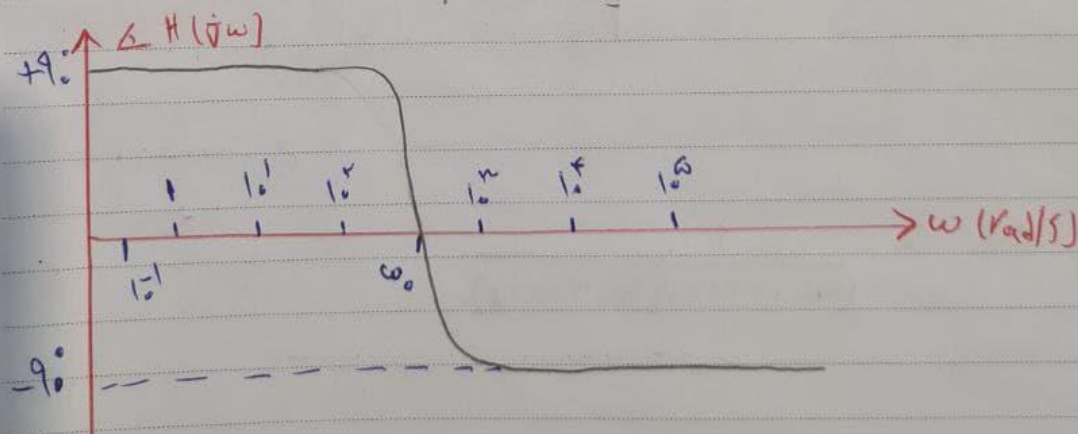 ∠ H(jω)
+۹۰°
۱ ۱۰¹ ۱۰² ۱۰³ ۱۰⁴ ۱۰⁵
ω (rad/s)
۱۰⁻¹ ω₀
-۹۰°